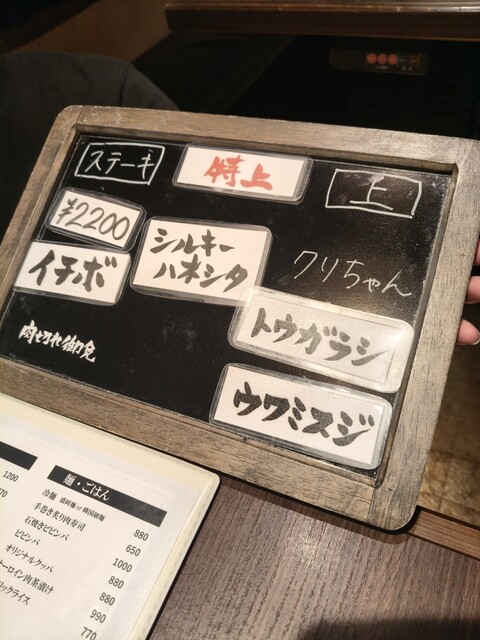 ステーキ
特上
上
¥2200
シルキー
ハネシタ
クリちゃん
イチボ
トウガラシ
ウワミスジ
肉切れ御免
麺・ごはん
1200
冷麺 盛岡麺or韓国細麺 880
手巻き炙り肉寿司 650
石焼きビビンバ 1000
ビビンバ 880
オリジナルクッパ 880
ーロイン肉茶漬け 990
リックライス 770